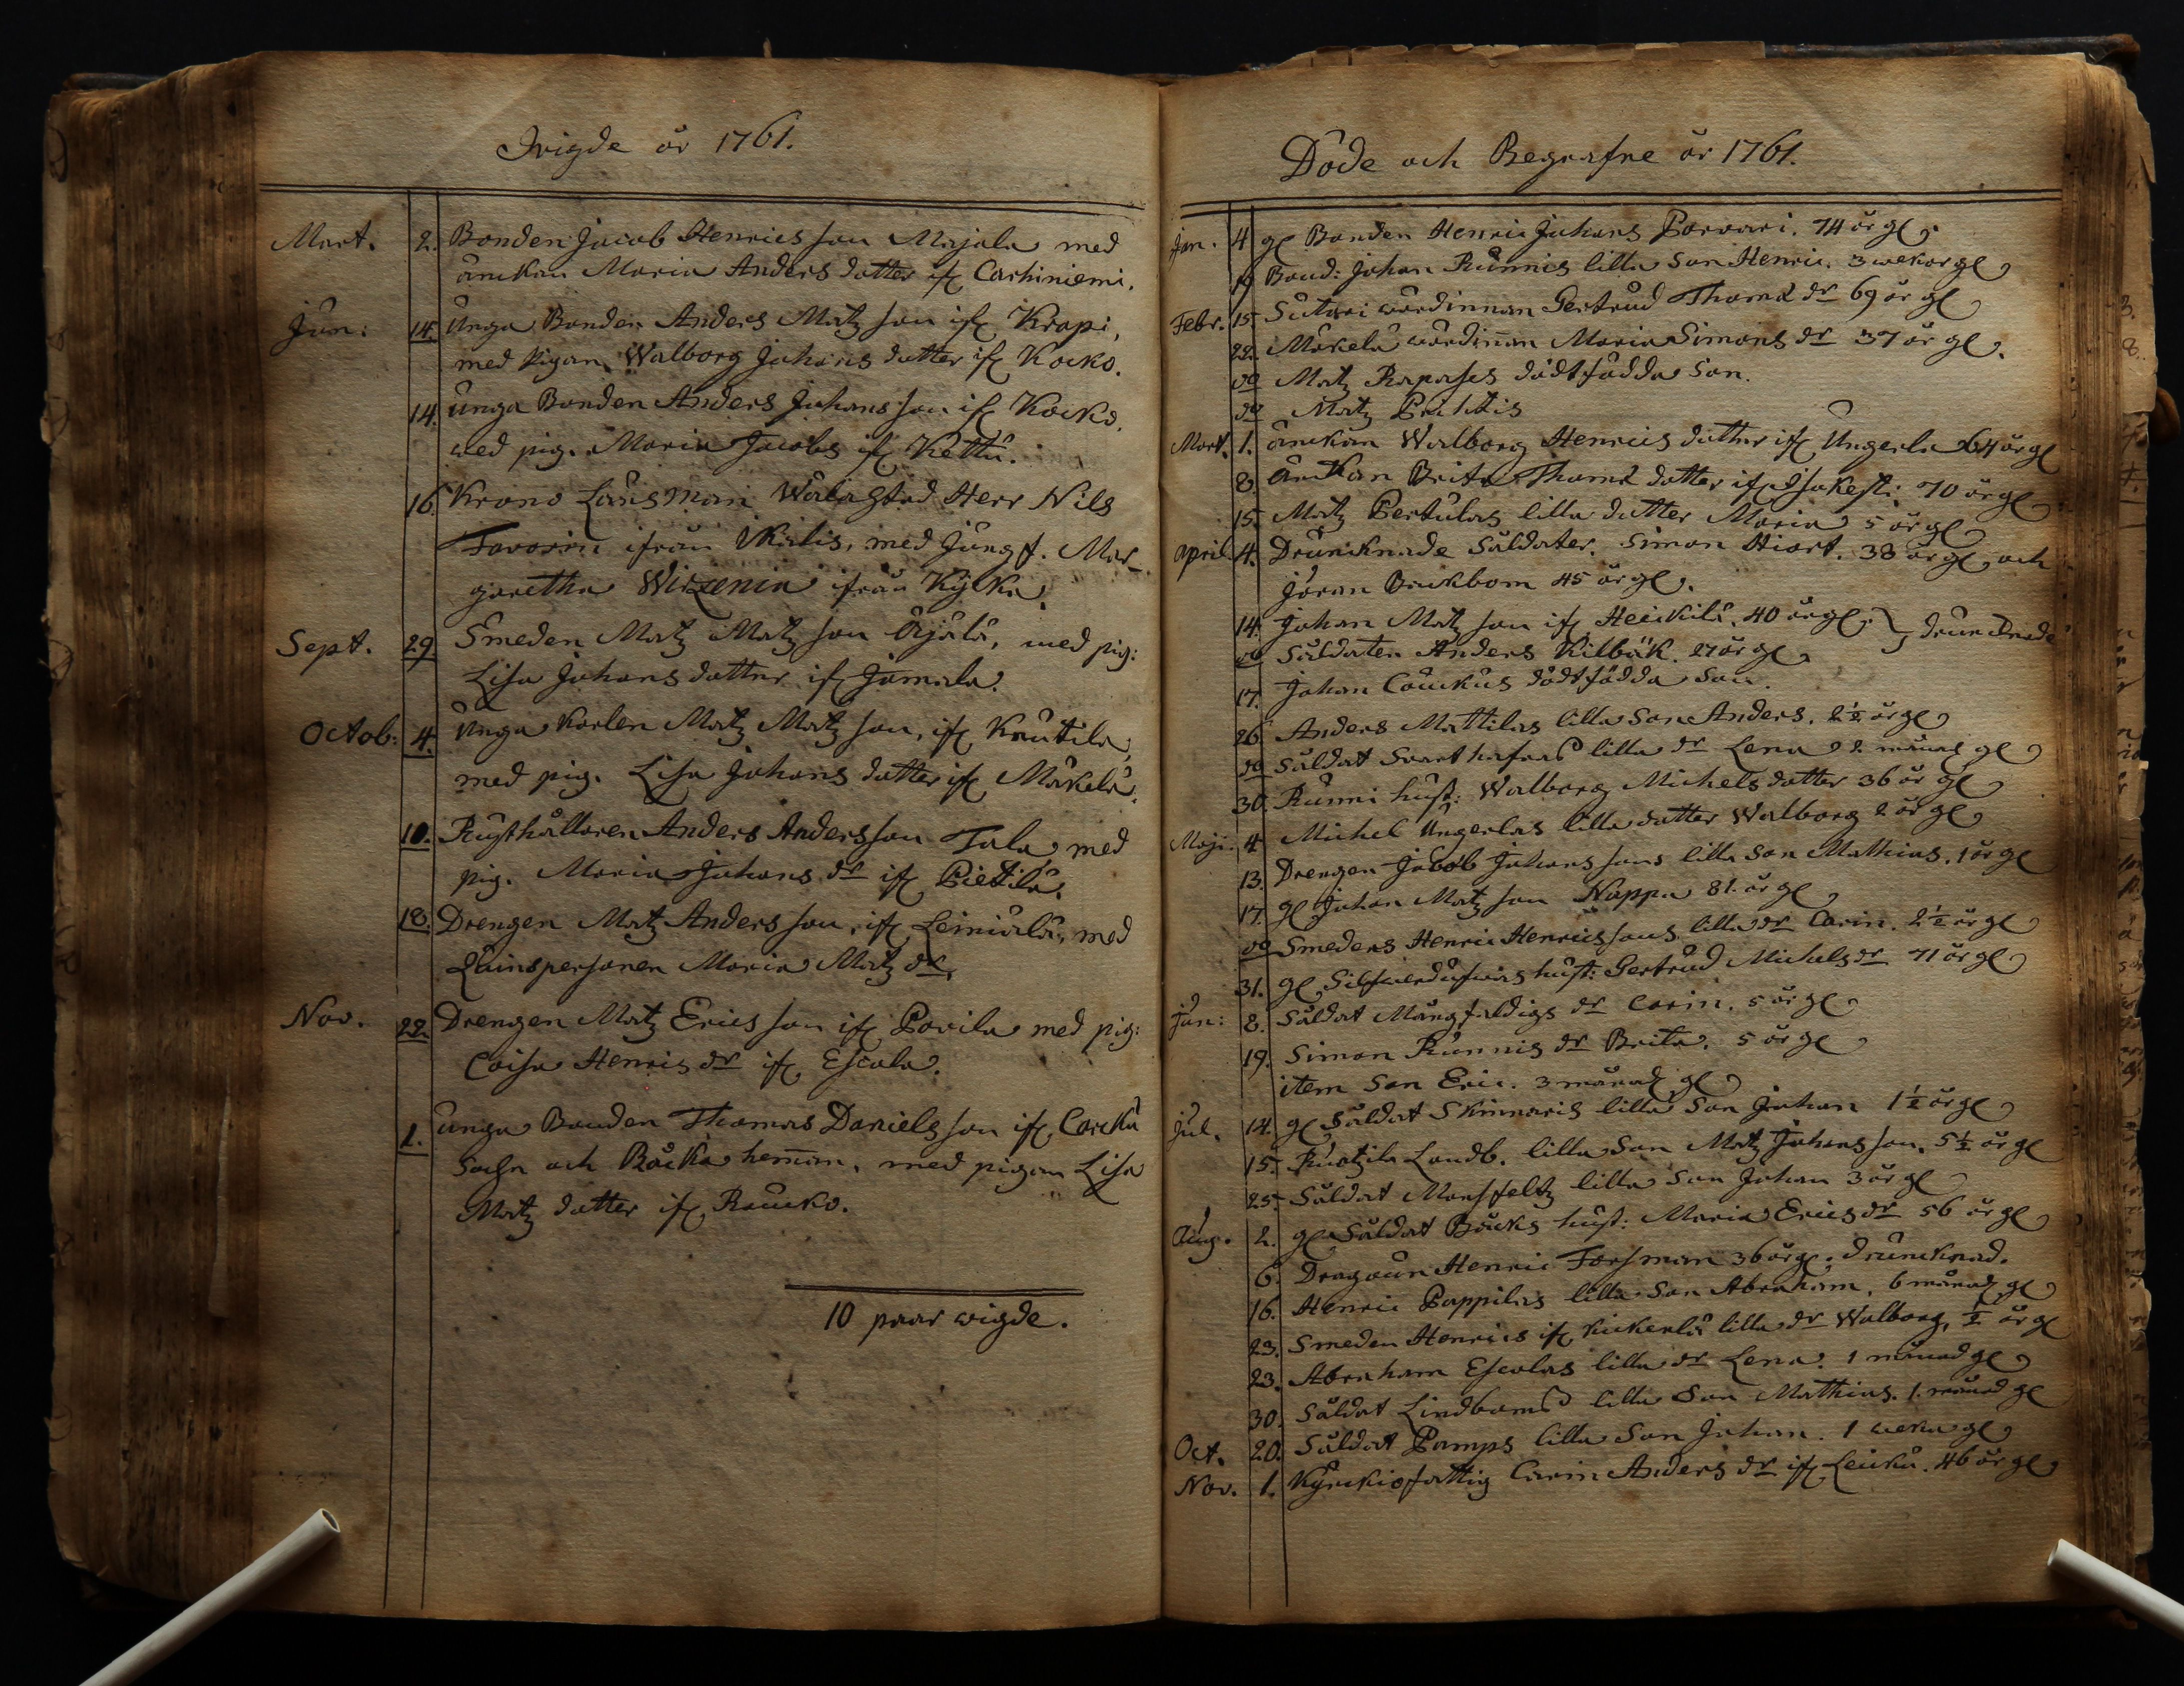 Jvigde år 1761.
Mart. 2. Bonden Jacob Henrics son Majala med
änckan Maria Anders dotter if Carhiniemi.
Jun: 14. Unga Bonden Anders Matz son if Krapi,
med pigan Walborg Johans dotter if Kocko.
14. Unga Bonden Anders Johans son if Kocko,
med pig. Maria Jacobs if Kettu.
16. Krono Länsman Wälagtad Herr Nils
Favorin ifrån Ukalis, med Jungf. Mar-
garetha Wirzenia ifrån Kylke.
Sept. 29 Smeden Matz Matz son Äjälä, med pig:
Lisa Johans dotter if Jamala.
Octob: 4. Unga karlen Matz Matz son, if Knutila,
med pig. Lisa Johans dotter if Mäkelä.
10. Rusthållaren Anders Andersson Tala med
pig. Maria Johans dr if Pietilä.
18. Drengen Matz Anders son, if Leiniälä, med
Quinspersonen Maria Matz dr.
Nov. 22. Drengen Matz Erics son if Pavila med pig:
Caisa Henrics dr if Escola.
1. unga Bonden Thomas Daniels son if Carcku
Sochn och Båcka hemman, med pigan Lisa
Matz dotter if Raucko.
10 paar wigde.
Döde och Begrafne år 1761.
Jan. 4 gl Bonden Henric Johans Porvari. 74 år gl.
19 Bond: Johan Runnis lilla Son Henric. 3 wekor gl
Febr. 15. Sutari wärdinnan Gertrud Thoma dr 69 år gl
22. Mäkelä wärdinnan Maria Simons dr 37 år gl.
do Matz Rapases dödtfödda Son.
do Matz Prihtis
Mart. 1. änckan Walborg Henrics dotter if Ungerla 64 år gl
8. Änckan Brita Thoma dotter if Isakesti. 70 år gl
15. Matz Pertulas lilla dotter Maria 5 år gl
april 4. Drunknade Såldater. Simon Hiort. 38 år gl, och
Jöran Brukbom 45 år gl.
14. Johan Matz son if Heickilä. 40 år gl. } drunknade
do Såldaten Anders Kilbäk. 27 år gl
17. Johan Couckus dödtfödda Son.
26 Anders Mattilas lilla Son Anders. 2 1/2 år gl
do Såldat Svarthafras lilla dr Lena 2 månad gl
30. Runni hust: Walborg Michels dotter 36 år gl
Maji. 4 Michel Ungerlas lilla dotter Walborg 2 år gl
13. Drengen Jacob Johans sons lilla Son Mathias. 1 år gl
17. gl Johan Matz son Nappa 81. år gl
do Smedens Henric Henrics sons lilla dr Carin. 2 1/2 år gl
31. gl hust: Gertrud Michels dr 71 år gl
Jun: 8. Såldat Mångfaldigs dr Carin. 5 år gl
19. Simon Runnis dr Brita. 5 år gl
item Son Eric. 3 månad gl
Jul. 14. gl Såldat Skinnaris lilla Son Johan 1 1/2 år gl
15. Ruotzila Landb. lilla Son Matz Johans son. 5 1/2 år gl
25. Såldat Mansfeltz lilla Son Johan 3 år gl
Aug. 2. gl Såldat Bäcks hust: Maria Erics dr 56 år gl
6. Dragoun Henric Forsman 36 år gl. drunknad.
16. Henric Pappilas lilla Son Abraham. 6 månad gl
23. Smeden Henrics if Kickerlä lilla dr Walborg, 1/2 år gl
23. Abraham Escolas lilla dr Lena. 1 månad gl
30. Såldat Lindboms lilla Son Mathias. 1. månad gl
Oct. 20. Såldat Pamps lilla Son Johan. 1 weka gl
Nov. 1. Kyrckiofattig Carin Anders dr if Leuku. 46 år gl